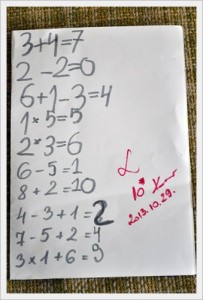 3+4=7
2-2=0
6+1-3=4
1*5=5
2*3=6
6-5=1
8+2=10
4-3+1=2
7-5+2=4
3×1+6=9
10*
2013.10.29.